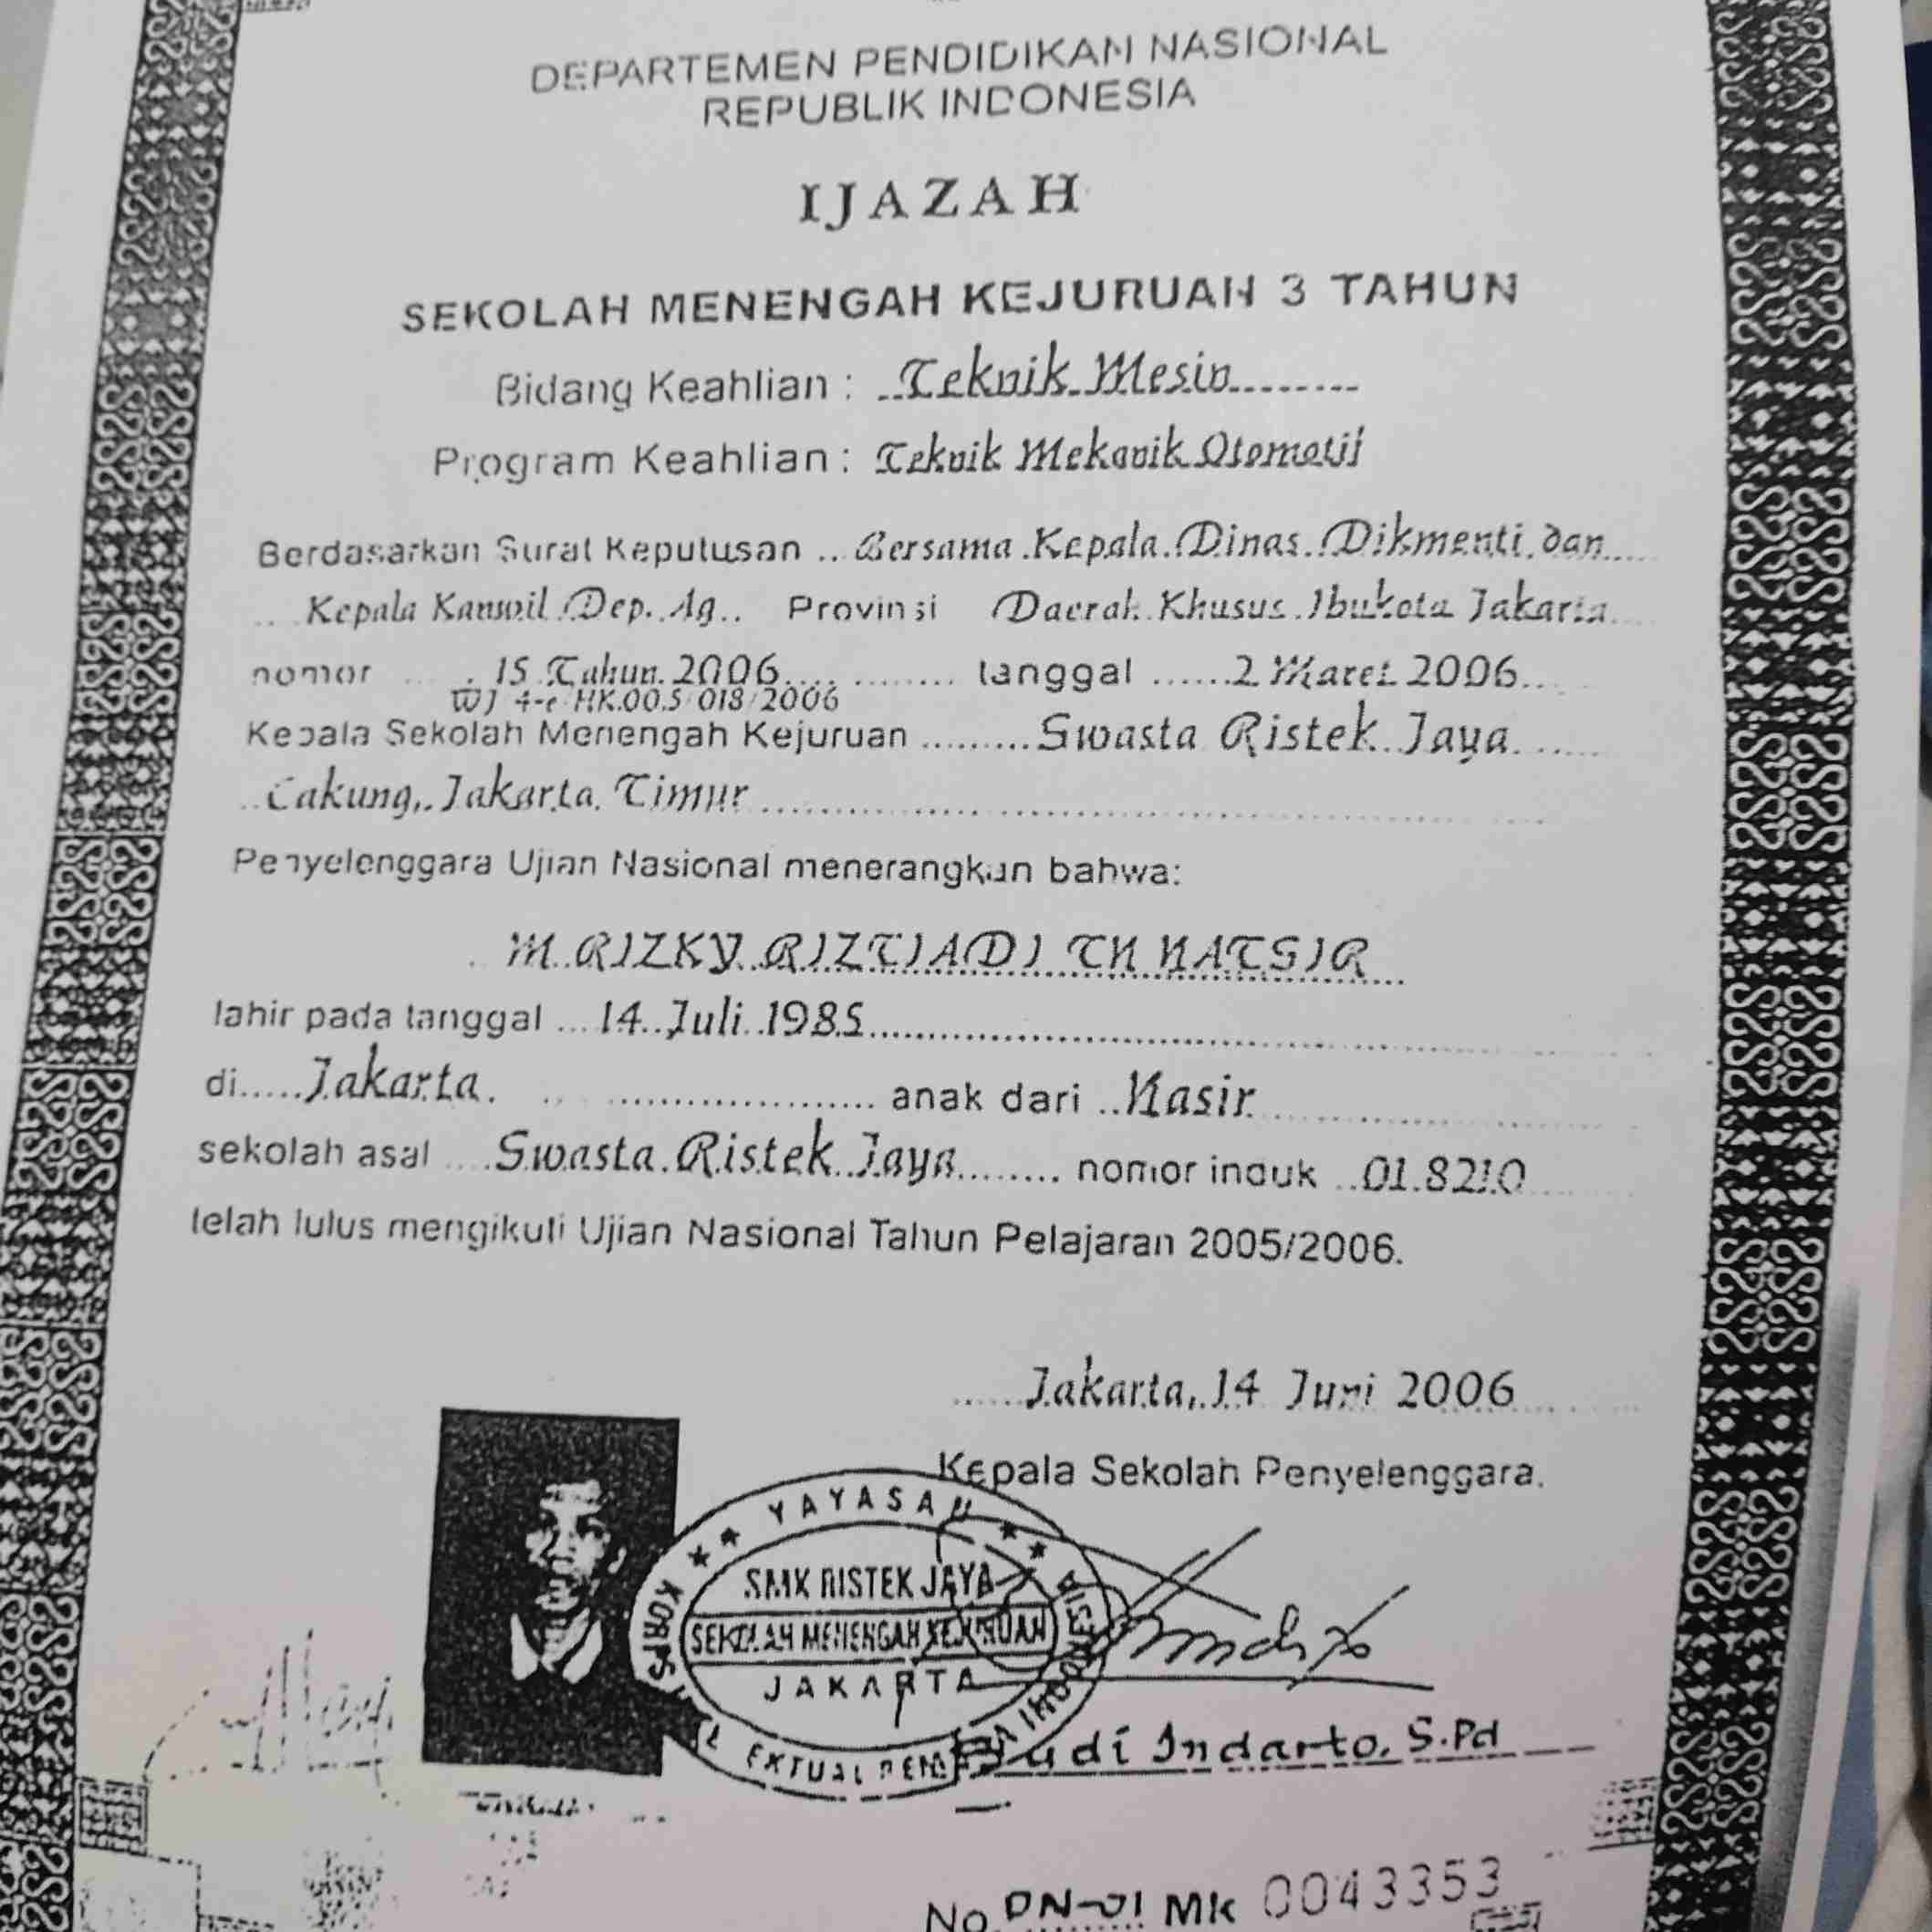 DEPARTEMEN PENDIDIKAN NASIONAL
REPUBLIK INDONESIA
IJAZAH
SEKOLAH MENENGAH KEJURUAN 3 TAHUN
Bidang Keahlian : Teknik Mesin
Program Keahlian : Teknik Mekanik Otomotif
Berdasarkan Surat Keputusan Bersama Kepala Dinas Dikmenti dan
Kepala Kanwil Dep. Ag. Provinsi Daerah Khusus Ibukota Jakarta
nomor 15 Tahun 2006 tanggal 2 Maret 2006
WJ 4-e HK.00.5 018/2006
Kepala Sekolah Menengah Kejuruan Swasta Ristek Jaya
Cakung, Jakarta Timur
Penyelenggara Ujian Nasional menerangkan bahwa:
M RIZKY RIZTIADI TN NATSIR
lahir pada tanggal 14 Juli 1985
di Jakarta. anak dari Nasir
sekolah asal Swasta Ristek Jaya nomor induk 01.8210
telah lulus mengikuti Ujian Nasional Tahun Pelajaran 2005/2006.
Jakarta, 14 Juni 2006
Kepala Sekolah Penyelenggara.
YAYASAN
SMK RISTEK JAYA
SEKOLAH MENENGAH KEJURUAN
JAKARTA
INDONESIA
Budi Indarto, S.Pd
No. DN-01 Mk 0043353